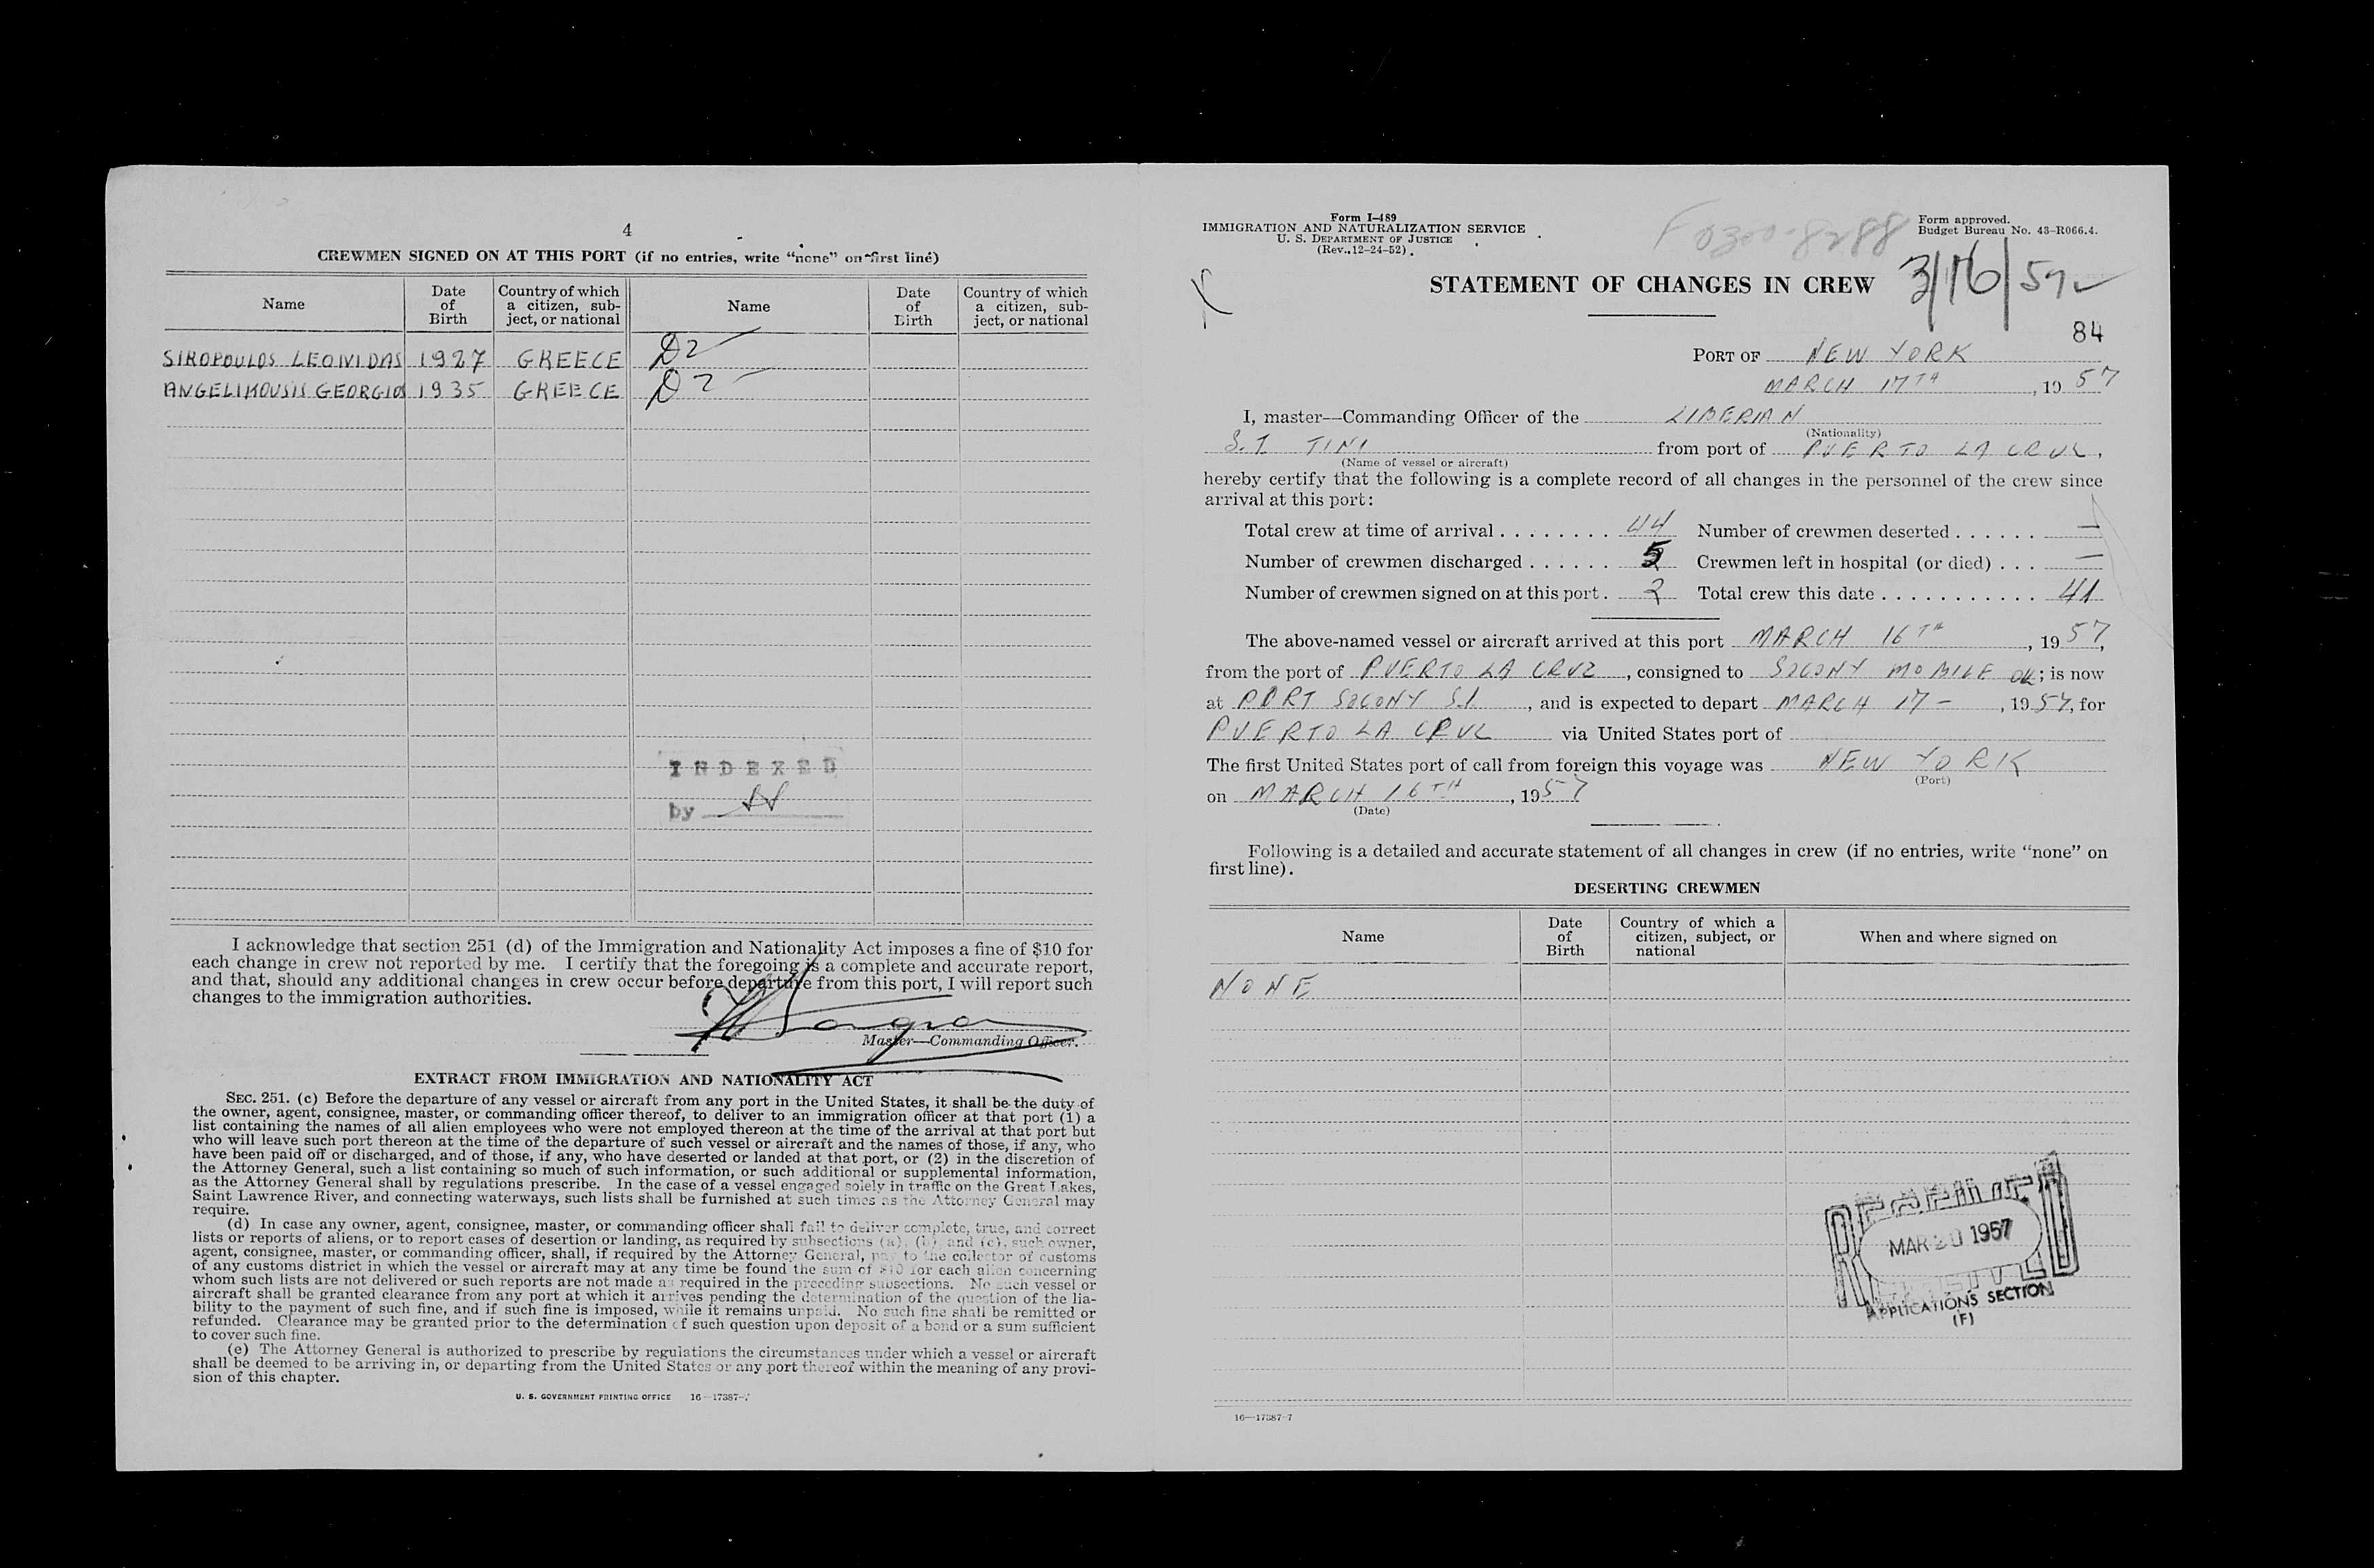 4
CREWMEN SIGNED ON AT THIS PORT (if no entries, write “none” on first line)
Name
Date of Birth
Country of which a citizen, subject, or national
Name
Date of Birth
Country of which a citizen, subject, or national
SIROPOULOS LEONIDAS 1927 GREECE D2
ANGELIKOUSIS GEORGIOS 1935 GREECE D2
INDEXED
by
I acknowledge that section 251 (d) of the Immigration and Nationality Act imposes a fine of $10 for
each change in crew not reported by me. I certify that the foregoing is a complete and accurate report,
and that, should any additional changes in crew occur before departure from this port, I will report such
changes to the immigration authorities.
Master—Commanding Officer.
EXTRACT FROM IMMIGRATION AND NATIONALITY ACT
SEC. 251. (c) Before the departure of any vessel or aircraft from any port in the United States, it shall be the duty of
the owner, agent, consignee, master, or commanding officer thereof, to deliver to an immigration officer at that port (1) a
list containing the names of all alien employees who were not employed thereon at the time of the arrival at that port but
who will leave such port thereon at the time of the departure of such vessel or aircraft and the names of those, if any, who
have been paid off or discharged, and of those, if any, who have deserted or landed at that port, or (2) in the discretion of
the Attorney General, such a list containing so much of such information, or such additional or supplemental information,
as the Attorney General shall by regulations prescribe. In the case of a vessel engaged solely in traffic on the Great Lakes,
Saint Lawrence River, and connecting waterways, such lists shall be furnished at such times as the Attorney General may
require.
(d) In case any owner, agent, consignee, master, or commanding officer shall fail to deliver complete, true, and correct
lists or reports of aliens, or to report cases of desertion or landing, as required by subsections (a), (b) and (c), such owner,
agent, consignee, master, or commanding officer, shall, if required by the Attorney General, pay to the collector of customs
of any customs district in which the vessel or aircraft may at any time be found the sum of $10 for each alien concerning
whom such lists are not delivered or such reports are not made as required in the preceding subsections. No such vessel or
aircraft shall be granted clearance from any port at which it arrives pending the determination of the question of the lia-
bility to the payment of such fine, and if such fine is imposed, while it remains unpaid. No such fine shall be remitted or
refunded. Clearance may be granted prior to the determination of such question upon deposit of a bond or a sum sufficient
to cover such fine.
(e) The Attorney General is authorized to prescribe by regulations the circumstances under which a vessel or aircraft
shall be deemed to be arriving in, or departing from the United States or any port thereof within the meaning of any provi-
sion of this chapter.
U. S. GOVERNMENT PRINTING OFFICE 16—17387-7
Form I-489
IMMIGRATION AND NATURALIZATION SERVICE
U. S. DEPARTMENT OF JUSTICE
(Rev. 12-24-52)
F0300-8288
Form approved.
Budget Bureau No. 43-R066.4.
STATEMENT OF CHANGES IN CREW
3/16/57
84
PORT OF NEW YORK
MARCH 17TH, 1957
I, master—Commanding Officer of the LIBERIAN
(Nationality)
S.T. TINI from port of PUERTO LA CRUZ,
(Name of vessel or aircraft)
hereby certify that the following is a complete record of all changes in the personnel of the crew since
arrival at this port:
Total crew at time of arrival 44 Number of crewmen deserted —
Number of crewmen discharged 5 Crewmen left in hospital (or died) —
Number of crewmen signed on at this port 2 Total crew this date 41
The above-named vessel or aircraft arrived at this port MARCH 16TH, 1957,
from the port of PUERTO LA CRUZ, consigned to SOCONY MOBILE OIL; is now
at PORT SOCONY S.I., and is expected to depart MARCH 17-, 1957, for
PUERTO LA CRUZ via United States port of
The first United States port of call from foreign this voyage was NEW YORK
(Port)
on MARCH 16TH, 1957
(Date)
Following is a detailed and accurate statement of all changes in crew (if no entries, write “none” on
first line).
DESERTING CREWMEN
Name
Date of Birth
Country of which a citizen, subject, or national
When and where signed on
NONE
RECEIVED
MAR 20 1957
APPLICATIONS SECTION
(F)
16—17387-7